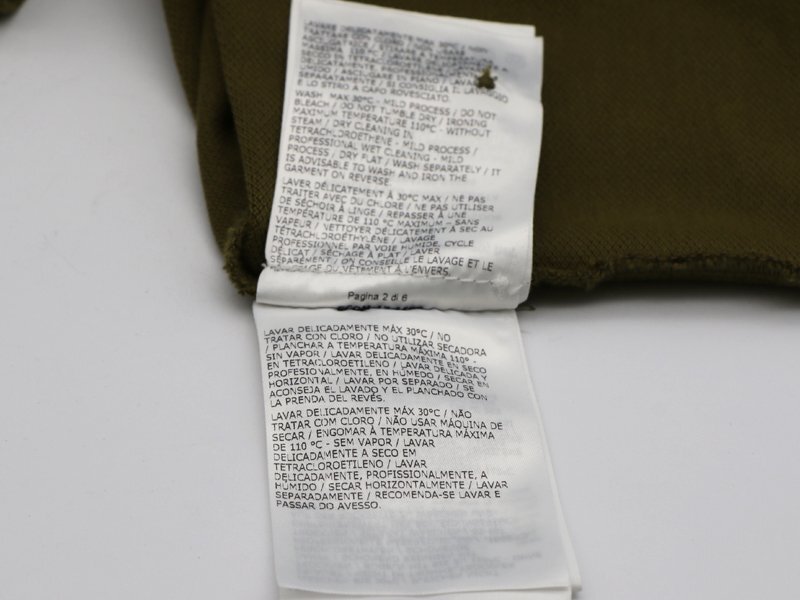 LAVARE DELICATAMENTE MAX 30°C / NON
TRATTARE CON CLORO / NON
ASCIUGATRICE / STIRARE
MASSIMA 110 °C
SECCO IN TETRACLOROETILENE / LAVARE
DELICATAMENTE, PROFESSIONALMENTE, A
UMIDO / ASCIUGARE IN PIANO / LAVARE
SEPARATAMENTE / SI CONSIGLIA IL LAVAGGIO
E LO STIRO A CAPO ROVESCIATO.
WASH MAX 30°C - MILD PROCESS / DO NOT
BLEACH / DO NOT TUMBLE DRY / IRONING
MAXIMUM TEMPERATURE 110°C - WITHOUT
STEAM / DRY CLEANING IN
TETRACHLOROETHENE - MILD PROCESS /
PROFESSIONAL WET CLEANING - MILD
PROCESS / DRY FLAT / WASH SEPARATELY / IT
IS ADVISABLE TO WASH AND IRON THE
GARMENT ON REVERSE.
LAVER DÉLICATEMENT À 30°C MAX / NE PAS
TRAITER AVEC DU CHLORE / NE PAS UTILISER
DE SÉCHOIR À LINGE / REPASSER À UNE
TEMPÉRATURE DE 110 °C MAXIMUM - SANS
VAPEUR / NETTOYER DÉLICATEMENT À SEC AU
TÉTRACHLOROÉTHYLÈNE / LAVAGE
PROFESSIONNEL PAR VOIE HUMIDE, CYCLE
DÉLICAT / SÉCHAGE À PLAT / LAVER
SÉPARÉMENT / ON CONSEILLE LE LAVAGE ET LE
DU VÊTEMENT À L'ENVERS.
Pagina 2 di 6
LAVAR DELICADAMENTE MÁX 30°C / NO
TRATAR CON CLORO / NO UTILIZAR SECADORA
/ PLANCHAR A TEMPERATURA MÁXIMA 110° -
SIN VAPOR / LAVAR DELICADAMENTE EN SECO
EN TETRACLOROETILENO / LAVAR DELICADA Y
PROFESIONALMENTE, EN HÚMEDO / SECAR EN
HORIZONTAL / LAVAR POR SEPARADO / SE
ACONSEJA EL LAVADO Y EL PLANCHADO CON
LA PRENDA DEL REVÉS.
LAVAR DELICADAMENTE MÁX 30°C / NÃO
TRATAR COM CLORO / NÃO USAR MÁQUINA DE
SECAR / ENGOMAR À TEMPERATURA MÁXIMA
DE 110 °C - SEM VAPOR / LAVAR
DELICADAMENTE A SECO EM
TETRACLOROETILENO / LAVAR
DELICADAMENTE, PROFISSIONALMENTE, A
HÚMIDO / SECAR HORIZONTALMENTE / LAVAR
SEPARADAMENTE / RECOMENDA-SE LAVAR E
PASSAR DO AVESSO.